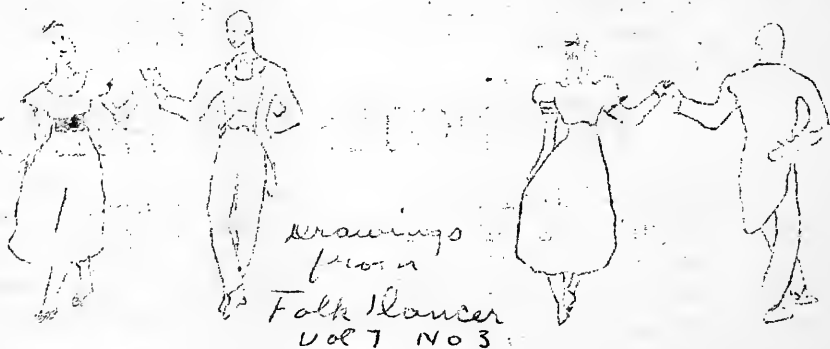 Drawings
from
Folk Dancer
Vol 7 No 3